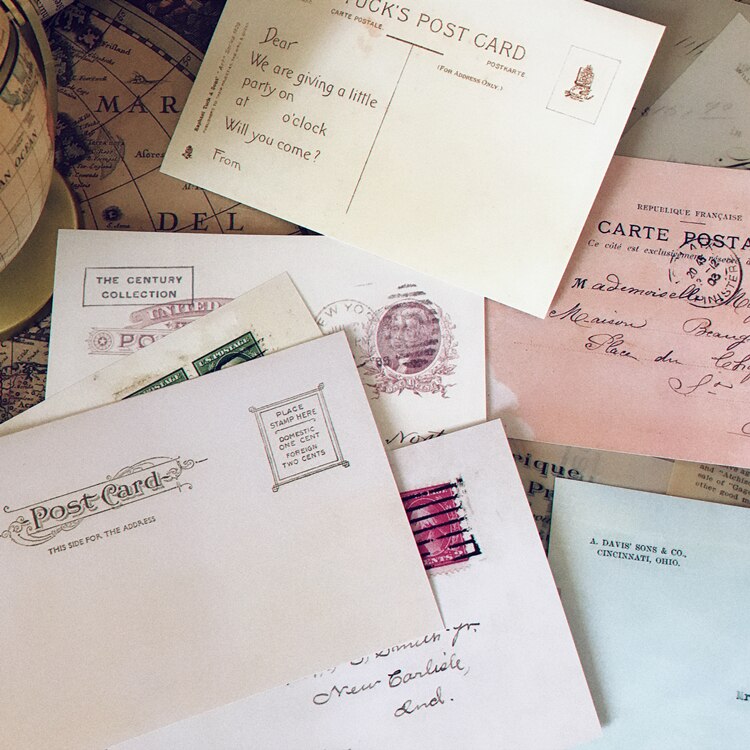 TUCK'S POST CARD
CARTE POSTALE.
POSTKARTE
(FOR ADDRESS ONLY.)
Dear
We are giving a little
party on
at o'clock
Will you come?
From
MAR
DEL
AN OCEAN
REPUBLIQUE FRANÇAISE
CARTE POSTA
Ce côté est exclusivement réservé
Mademoiselle
Maison Beau
Place du
THE CENTURY
COLLECTION
UNITED
PO
EW YO
U.S. POSTAGE
PLACE
STAMP HERE
DOMESTIC
ONE CENT
FOREIGN
TWO CENTS
Post Card
THIS SIDE FOR THE ADDRESS
CENTS 2
Smith jr.
New Carlisle,
Ind.
eique
Pr
and "Atchis
sale of "Ga
other good m
A. DAVIS' SONS & CO.,
CINCINNATI, OHIO.